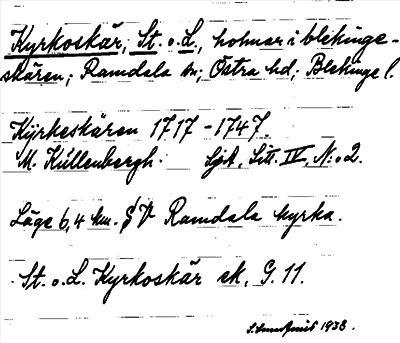 Kyrkoskär, St. o. L., holmar i blekinge-
skären; Ramdala sn; Östra hd; Blekinge l.
Kÿrkeskären 1717-1747.
M. Küllenbergh. Sjök. Litt. IV, N:o 2.
Läge 6,4 km. S V Ramdala kyrka.
St. o. L. Kyrkoskär ek. G. 11.
1938.